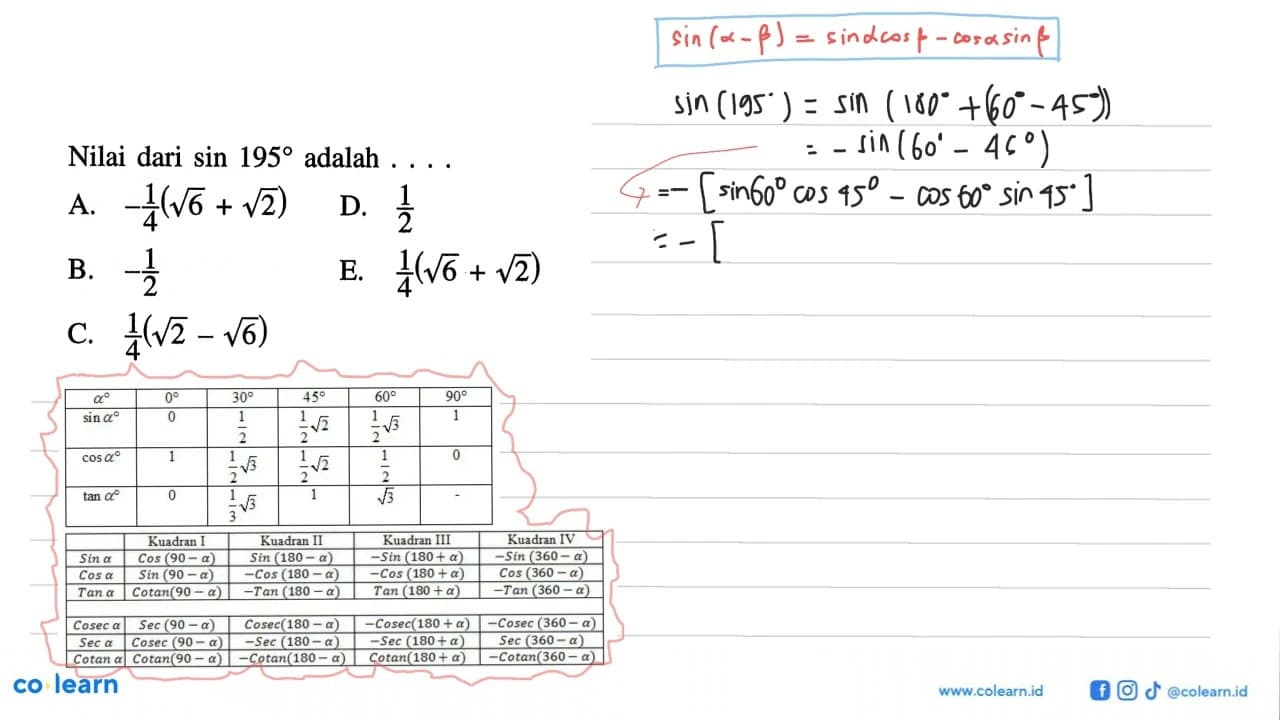 sin(α-β) = sinαcosβ - cosαsinβ
Nilai dari sin 195° adalah . . . .
A. -1/4(√6 + √2)
B. -1/2
C. 1/4(√2 - √6)
D. 1/2
E. 1/4(√6 + √2)
sin(195°) = sin (180° + (60° - 45°))
= - sin(60° - 45°)
= - [sin60° cos 45° - cos 60° sin 45°]
= - [
α° 0° 30° 45° 60° 90°
sin α° 0 1/2 1/2√2 1/2√3 1
cos α° 1 1/2√3 1/2√2 1/2 0
tan α° 0 1/3√3 1 √3 -
Kuadran I Kuadran II Kuadran III Kuadran IV
Sin α Cos (90 - α) Sin (180 - α) -Sin (180 + α) -Sin (360 - α)
Cos α Sin (90 - α) -Cos (180 - α) -Cos (180 + α) Cos (360 - α)
Tan α Cotan(90 - α) -Tan (180 - α) Tan (180 + α) -Tan (360 - α)
Cosec α Sec (90 - α) Cosec(180 - α) -Cosec(180 + α) -Cosec (360 - α)
Sec α Cosec (90 - α) -Sec (180 - α) -Sec (180 + α) Sec (360 - α)
Cotan α Cotan(90 - α) -Cotan(180 - α) Cotan(180 + α) -Cotan(360 - α)
co learn
www.colearn.id
@colearn.id